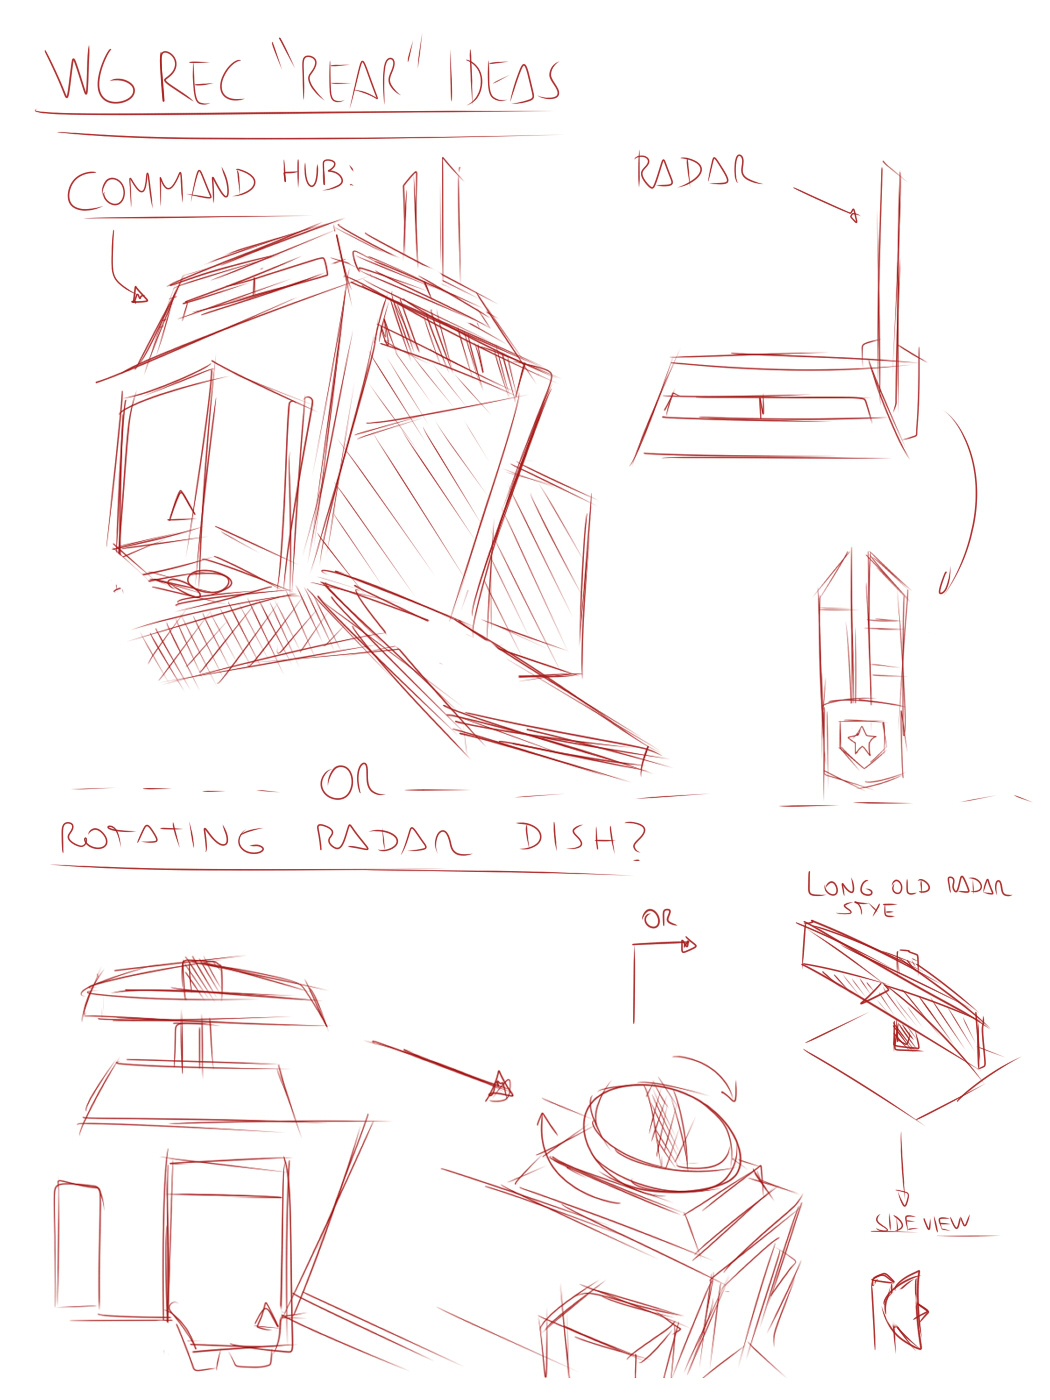 WG REC "REAR" IDEAS
COMMAND HUB:
RADAR
OR
ROTATING RADAR DISH?
LONG OLD RADAR
STYE
OR
SIDE VIEW